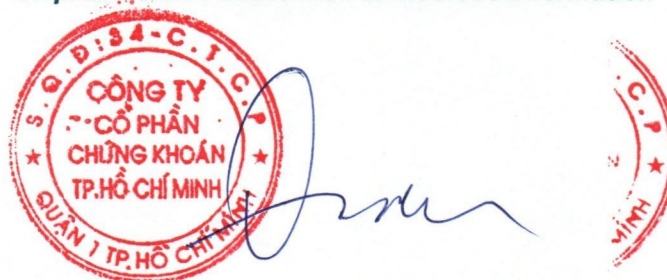 S.Q.Đ:34-C.T.C.P
CÔNG TY
CỔ PHẦN
CHỨNG KHOÁN
TP.HỒ CHÍ MINH
QUẬN 1 TP.HỒ CHÍ MINH
.C.P
MINH